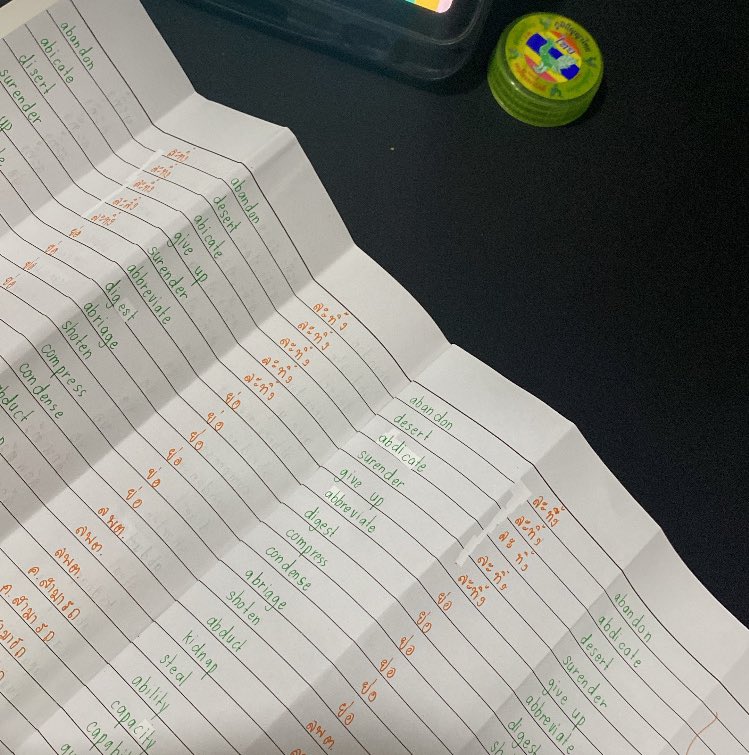 abandon
abicate
disert
surender
up
ละทิ้ง
ละทิ้ง
ละทิ้ง
ละทิ้ง
ละทิ้ง
ย่อ
ย่อ
ย่อ
abandon
desert
abicate
give up
surender
abbreviate
digest
abriage
shoten
compress
condense
ละทิ้ง
ละทิ้ง
ละทิ้ง
ละทิ้ง
ละทิ้ง
ย่อ
ย่อ
ย่อ
ย่อ
ย่อ
ลพต.
ลพต.
ลพต.
ค.สามารถ
ค.สามารถ
abandon
desert
abdicate
surender
give up
abbreviate
digest
compress
condense
abriage
shoten
abduct
kidnap
steal
ability
capacity
ละทิ้ง
ละทิ้ง
ละทิ้ง
ละทิ้ง
ละทิ้ง
ย่อ
ย่อ
ย่อ
ย่อ
ย่อ
ย่อ
ลพต.
abandon
abdicate
desert
surender
give up
abbreviat
digest